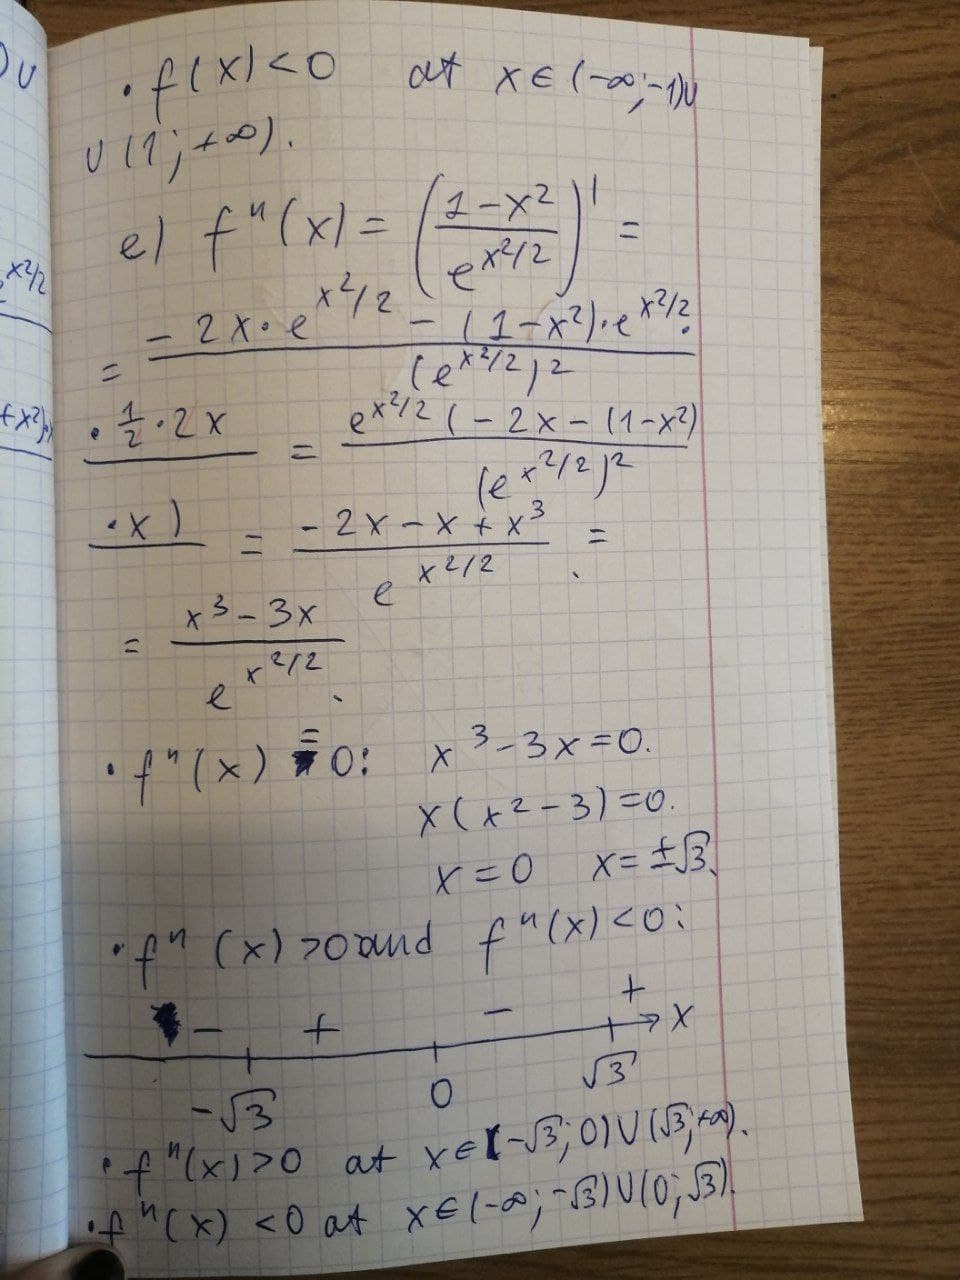 • f(x)<0 at x∈(-∞;-1)∪
∪(1;+∞).
e) f"(x) = ((1-x²)/(e^(x²/2)))' =
= (-2x·e^(x²/2) - (1-x²)·e^(x²/2)·
·1/2·2x)/((e^(x²/2))²) = (e^(x²/2)(-2x-(1-x²)
·x))/((e^(x²/2))²) = (-2x-x+x³)/(e^(x²/2)) =
= (x³-3x)/(e^(x²/2)).
• f"(x) = 0: x³-3x=0.
x(x²-3)=0.
x=0 x=±√3.
• f"(x)>0 and f"(x)<0:
- + - + x
-√3 0 √3
• f"(x)>0 at x∈(-√3;0)∪(√3;+∞).
• f"(x)<0 at x∈(-∞;-√3)∪(0;√3).